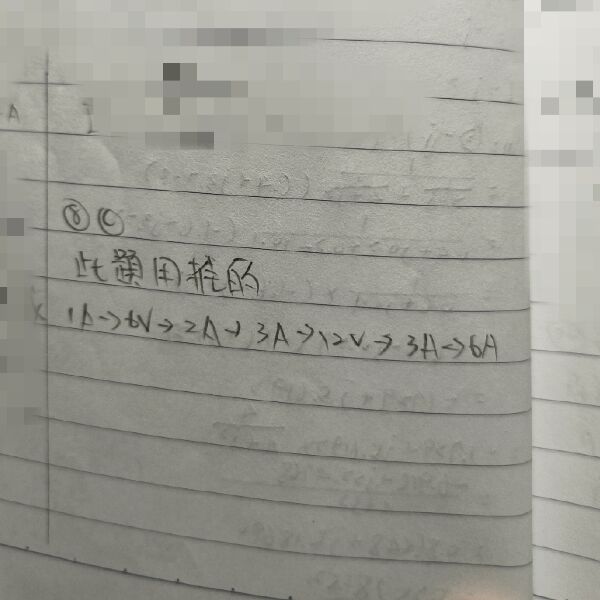 A
⑧ Ⓒ
此題用推的
1A→6V→2A→3A→12V→3A→6A